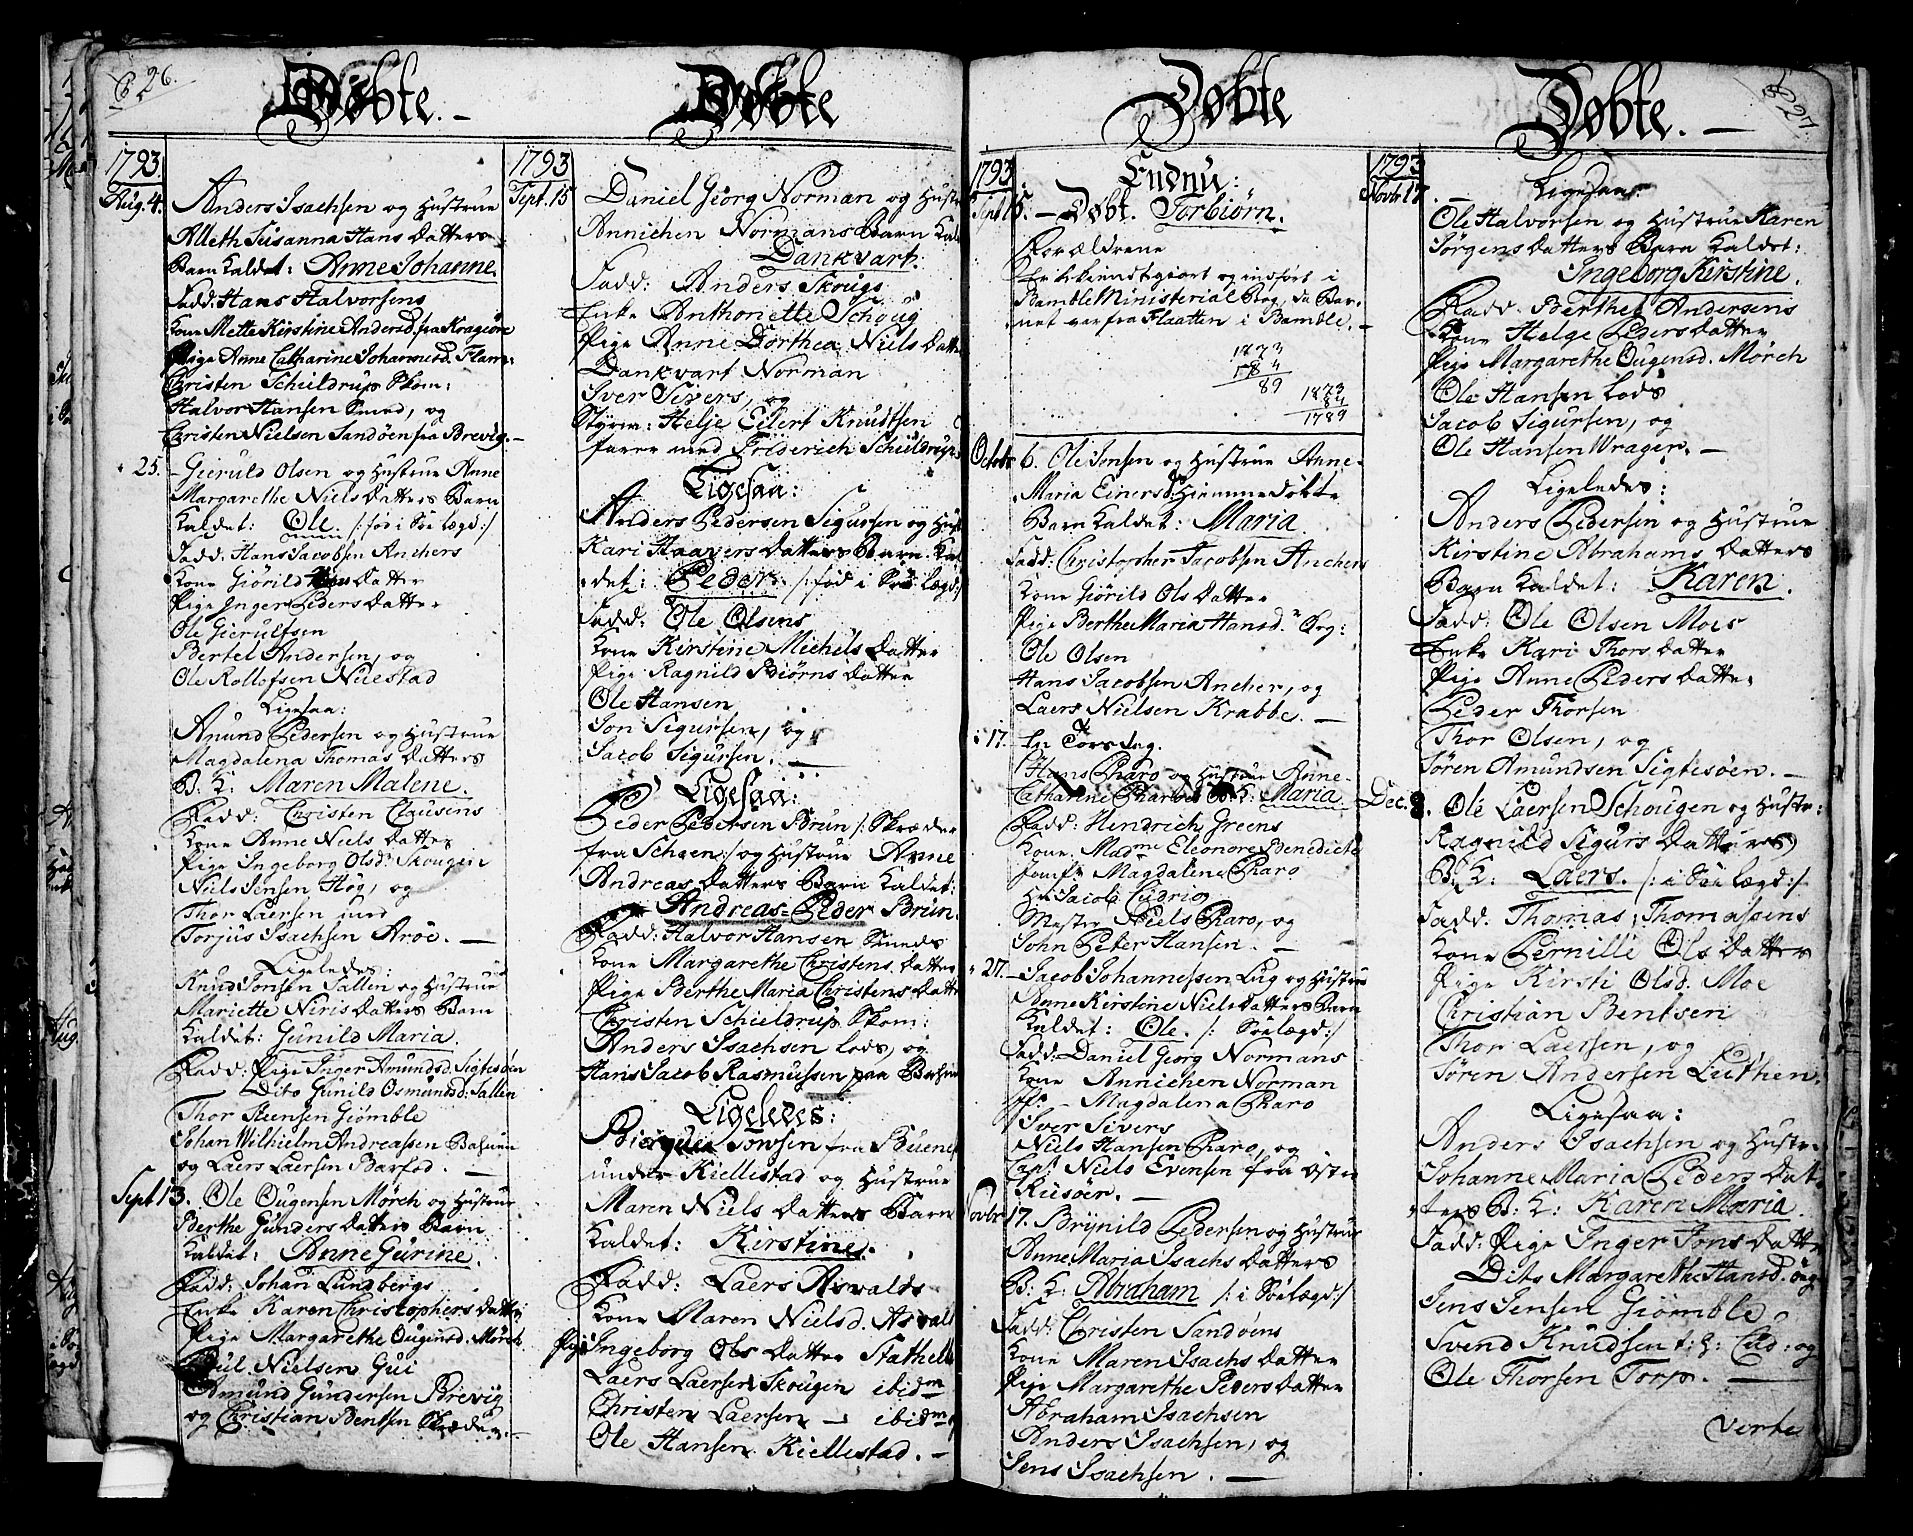 26.
Døbte. -
1793.
Aug. 4. Anders Isachsen og Hustrue
Alleth Susanna Hans Datters
Barn kaldet: Anne Johanne.
Fadd: Hans Halvorsens
Kone Mette Kirstine Andersd. fra Kragiøe
Pige Anne Catharine Johannesd. Flam:
Christen Schieldrup Skom:
Halvor Hansen Smed, og
Christen Nielsen Sandøen fra Brevig. -
25. - Gieruld Olsen og Hustrue Anne
Margarethe Niels Datters Barn
kaldet: Ole. /: fød i Søe lægd :/
Fadd: Hans Jacobsen Anchers
Kone Giørild Datter
Pige Inger Peders Datter
Ole Gierulfsen
Bertel Andersen, og
Ole Rollofsen Niestad
Ligesaa:
Amund Pedersen og Hustrue
Magdalena Thomas Datters
B: K: Maren Malene.
Fadd: Christen Clausens
Kone Anne Niels Datter
Pige Ingeborg Olsd. Skougen
Niels Jensen Høg, og
Thor Laersen med
Torjus Isachsen Arøe. -
Ligeledes:
Knud Jonsen Sallen og Hustrue
Mariette Niris Datters Barn
kaldet: Gunild Maria.
Fadd: Pige Inger Amundsd. Sigtesøen
Dito Gunild Osmundsd: Sallen
Thor Steensen Giømble
Johan Wilhielm Andreassen
og Laers Laersen Barfod. -
Sept 13. Ole Ougensen Mørch og Hustrue
Berthe Gunders Datters Barn
kaldet: Anne Gurine.
Fadd: Johan Lundbergs
Enke Karen Christophers Datter
Pige Margarethe Ougensd. Mørch
Poul Nielsen Gui
Amund Gundersen Brevig
og Christian Bentsen Skræder. -
Døbte
1793
Sept. 15 Daniel Giørg Norman og Hustr
Annichen Normans Barn kal
Dankvart.
Fadd: Anders Skougs
Enke Anthoriette Schoug
Pige Anne Dorthea Niels Datt
Dankvart Norman
Iver Sivers, og
Styrm: Helje Eilert Knudtsen
farer med Friderich Schieldrup
Ligesaa:
Anders Pedersen Sigursen og Hust
Kari Haavers Datters Barn kal
det: Peder. /: fød i Søe lægd :/
Fadd: Ole Olsens
Kone Kirstine Michels Datter
Pige Ragnild Biørns Datter
Ole Hansen
Jon Sigursen, og
Jacob Sigursen. -
Ligesaa:
Peder Pedersen Brun /: Skræder
fra Scheen :/ og Hustrue Anne
Andreas Datters Barn kaldet:
Andreas=Peder Brun.
Fadd: Halvor Hansen Smeds
Kone Margarethe Christens Datter
Pige Berthe Maria Christens Datte
Christen Schieldrup Skom:
Anders Isachsen Lods, og
Hans Jacob Rasmussen paa
Ligeledes:
Jonsen fra
under Kiellestad og Hustrue
Maren Niels Datters Barn
kaldet: Kirstine.
Fadd: Laers Asvalds
Kone Maren Nielsd. Asvald
Pige Ingeborg Ols Datter Stathelle
Laers Laersen Skougen ibidm
Christen Laersen - ibidm
Ole Hansen Kiellestad. -
27
Døbte
1793
Sept 15. - Endnu:
Døbt. Torbiørn.
Forældrene
er bekiendtgiort og indført i
Bamble Ministerial Bog, da Bar-
net var fra Flaatten i Bamble. -
1873
1784
89
1873
84
1789
Octobr 6. Ole Jensen og Hustrue Anne
Maria Einersd. Hiemme Døbte
Barn kaldet: Maria
Fadd: Christopher Jacobsen Anchers
Kone Giørild Ols Datter
Pige Berthe Maria Hansd. Ørg:
Ole Olsen
Hans Jacobsen Ancher, og
Laers Nielsen Krabbe. -
17. En Torsdag.
Hans Pharo og Hustrue Anne
Catharine Pharoes B: K: Maria
Fadd: Hendrich Greens
Kone Madme Eleonore Benedicte
Jomfr Magdalena Pharo
Hr. Jacob Cudrio,
Mester Niels Pharo, og
John Peter Hansen. -
27. - Jacob Johannessen Lug og Hustrue
Anne Kirstine Niels Datters Barn
kaldet: Ole. /: Søelægd :/
Fadd: Daniel Georg Normans
Kone Annichen Norman
Jfr. - Magdalena Pharo
Iver Sivers
Niels Hansen Pharo, og
Capt. Niels Evensen fra Øster
Riisøer. -
Novbr 17. Brynild Pedersen og Hustrue
Anne Maria Isachs Datters
B: K: Abraham /: i Søelægd :/
Fadd: Christen Sandøens
Kone Maren Isachs Datter
Pige Margarethe Peders Datter
Abraham Isachsen
Anders Isachsen, og
Jens Isachsen. -
Døbte. -
1793
Novbr 17. - Ligesaa
Ole Halvorsen og Hustrue Karen
Jørgens Datters Barn kaldet:
Ingeborg Kirstine.
Fadd. Berthel Andersens
Kone Helge Peders Datter
Pige Margarethe Ougensd. Mørch
Ole Hansen Lods
Jacob Sigursen, og
Ole Hansen Wrager. -
Ligeledes:
Anders Pedersen og Hustrue
Kirstine Abrahams Datters
Barn kaldet: Karen.
Fadd: Ole Olsen Moes
Enke Kari Thors Datter
Pige Anne Peders Datter
Peder Thorsen
Thor Olsen, og
Søren Amundsen Sigtesøen. -
Dec. 8. Ole Laersen Schougen og Hustr:
Ragnild Sigurs Datters
B. K: Laers. /: i Søe lægd :/
Fadd: Thomas Thomassens
Kone Pernille Ols Datter
Pige Kirsti Olsd. Moe
Christian Bentsen
Thor Laersen, og
Søren Andersen Luthen.
Ligesaa:
Anders Isachsen og Hustr:
Johanne Maria Peders Dat-
ters B: K: Karen Maria.
Fadd: Pige Inger Jons Datte
Dito Margarethe Hansd. Ørg
Jens Jensen Giømble
Svend Knudsen t: H: Eid: og
Ole Thorsen Torp. -
Verte